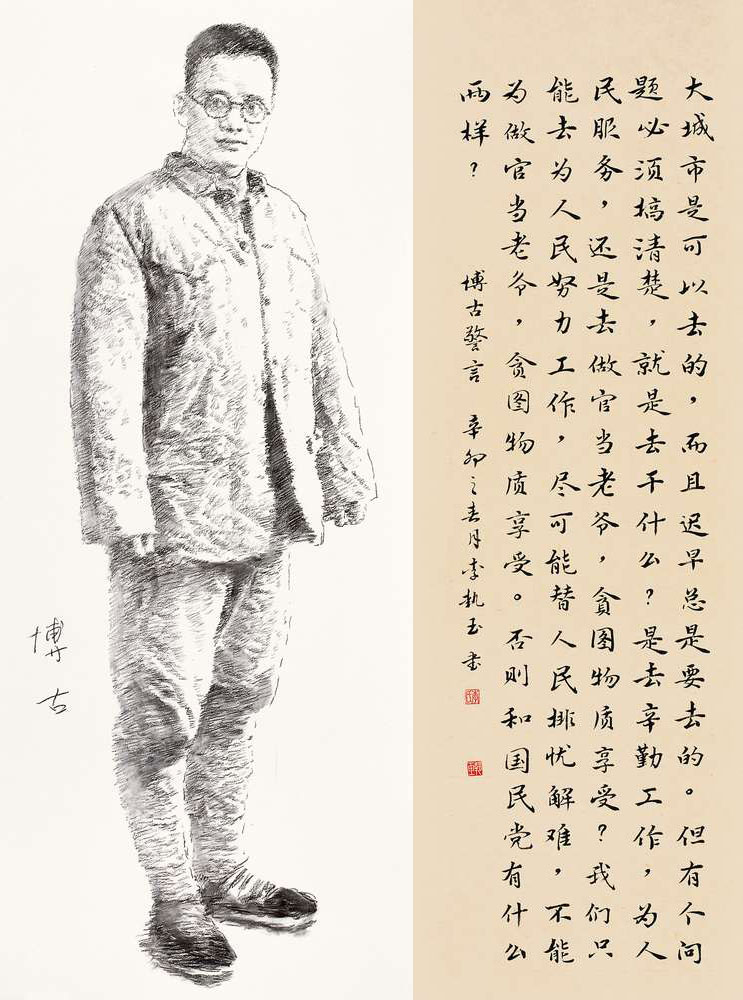 大城市是可以去的，而且迟早总是要去的。但有个问
题必须搞清楚，就是去干什么？是去辛勤工作，为人
民服务，还是去做官当老爷，贪图物质享受？我们只
能去为人民努力工作，尽可能替人民排忧解难，不能
为做官当老爷，贪图物质享受。否则和国民党有什么
两样？
博古警言 辛卯之春月李执玉书
博古